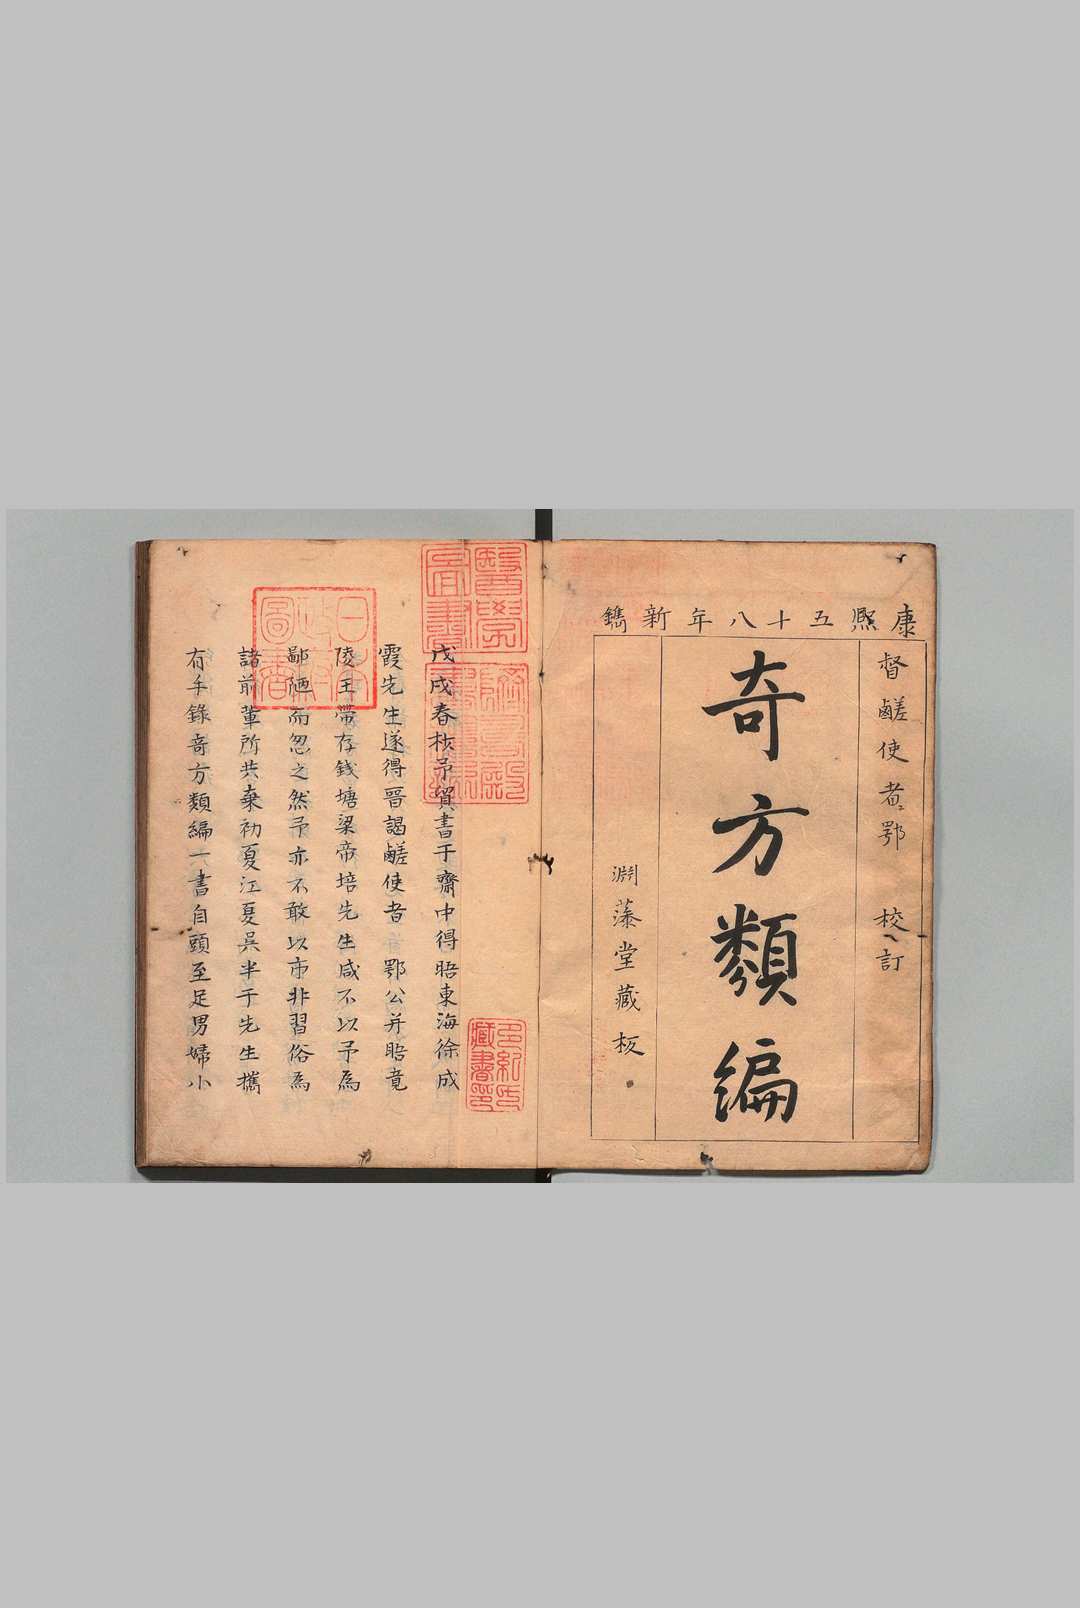 康熙五十八年新鐫
督鹺使者鄂 校訂
奇方類編
淵藻堂藏板
戊戌春杪予貿書于齋中得晤東海徐成
霞先生遂得晋謁鹺使者鄂公并晤竟
陵王帶存錢塘梁帝培先生咸不以予為
鄙陋而忽之然予亦不敢以市非習俗為
諸前輩所共棄初夏江夏吳半于先生攜
有手錄奇方類編一書自頭至足男婦小
醫學圖書
躋壽殿書籍記
日本政府圖書
藏書印